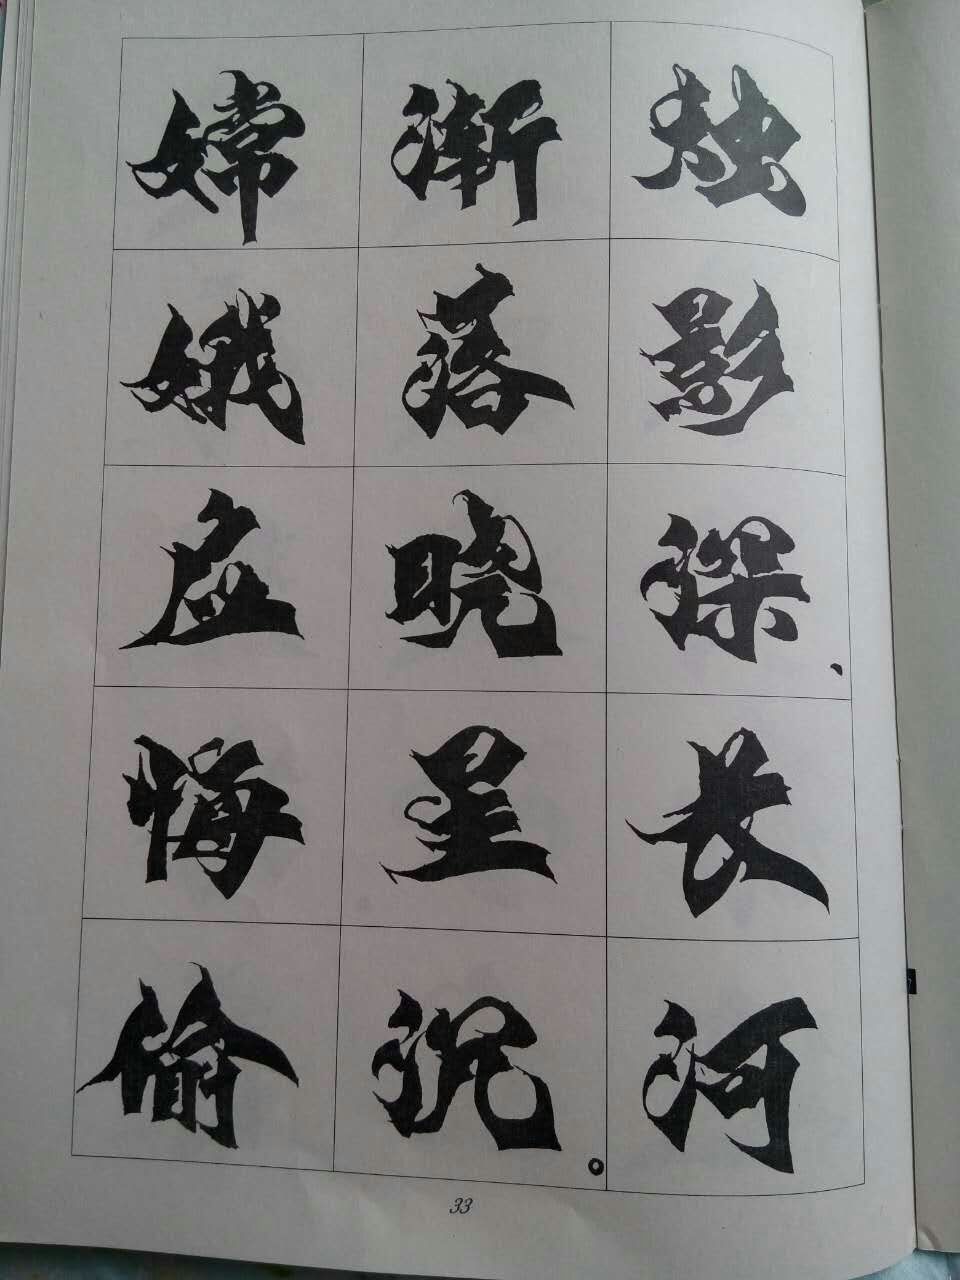 烛影深，长河
渐落晓星沉。
嫦娥应悔偷
33